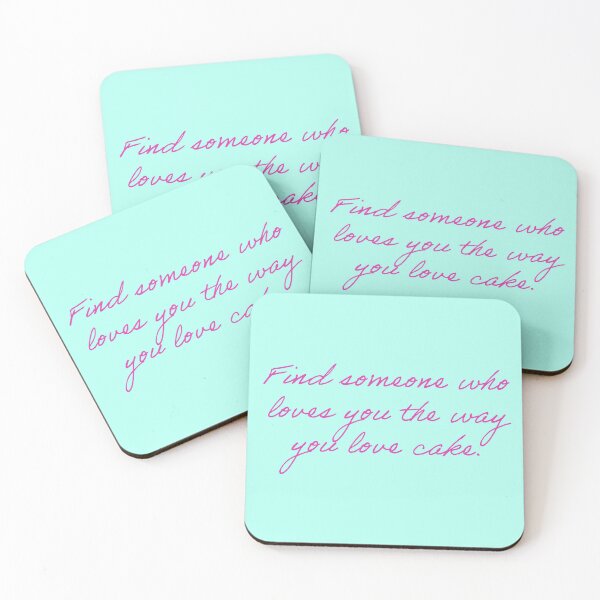 Find someone who
loves you the
Find someone who
loves you the way
you love cake.
Find someone who
loves you the way
you love
Find someone who
loves you the way
you love cake.